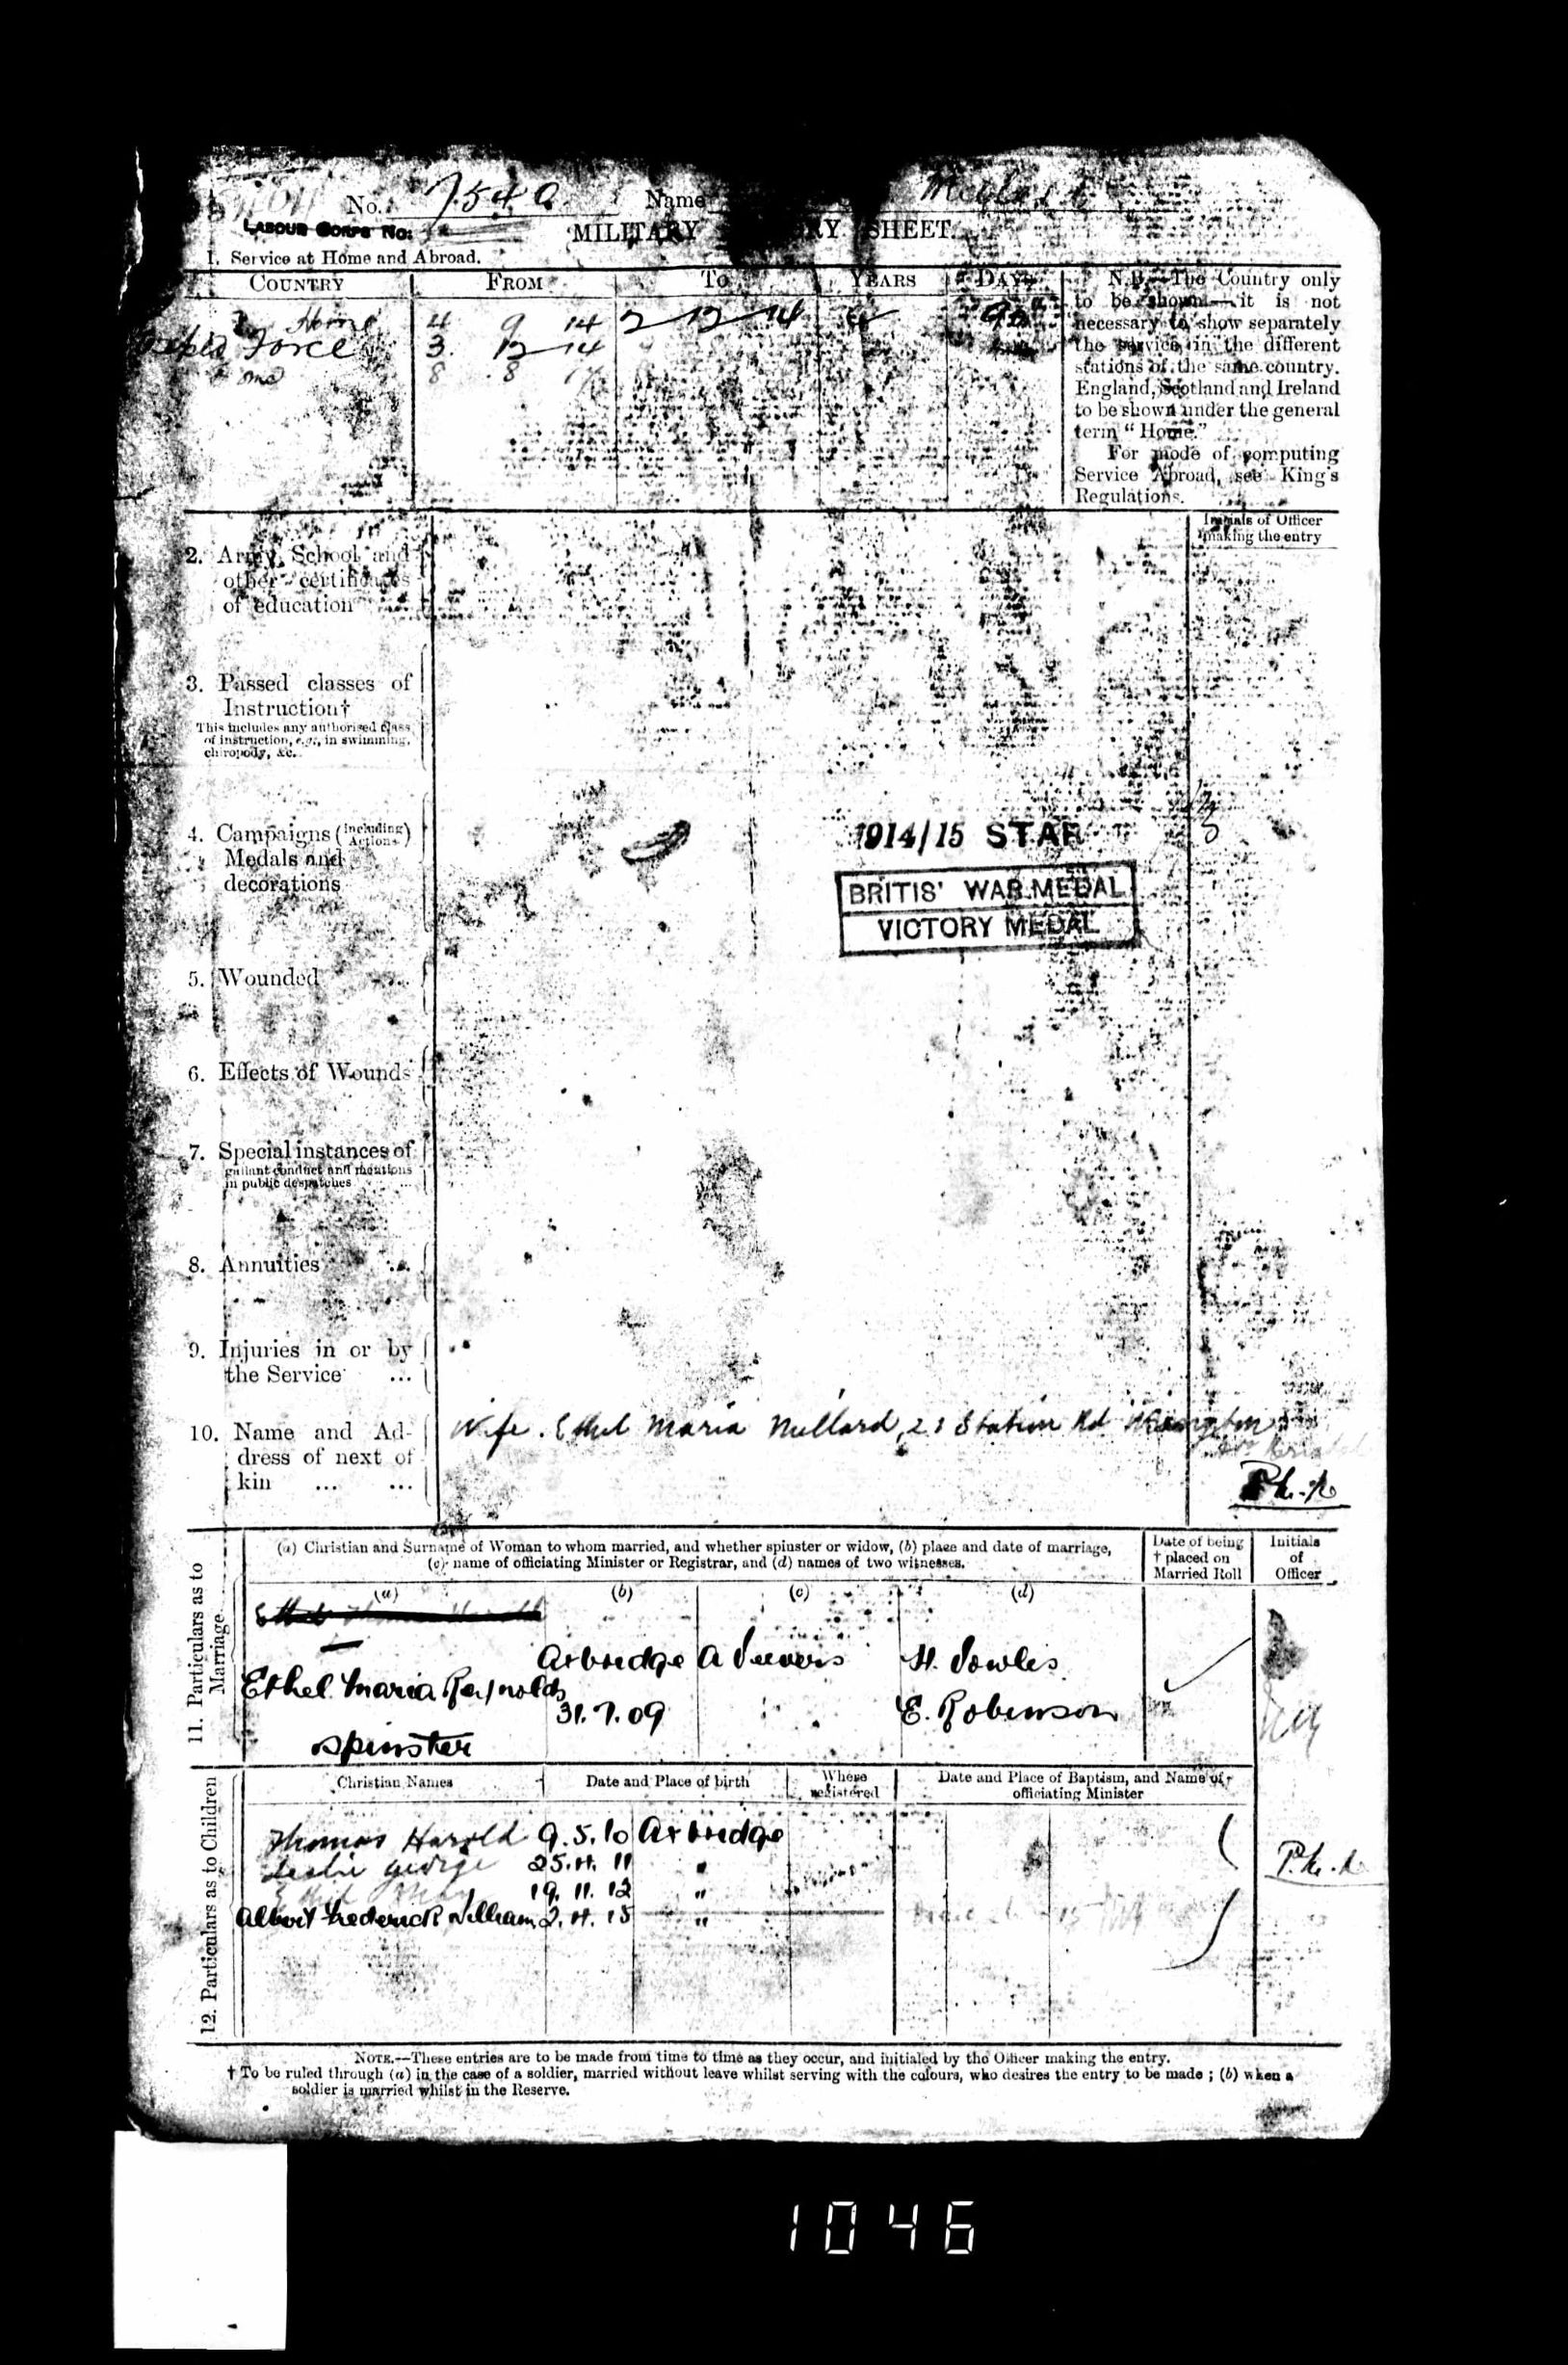 No. 7540 Name
LABOUR CORPS No:
MILITARY SHEET
1. Service at Home and Abroad.
COUNTRY FROM TO YEARS DAYS
Home 4 9 14 2 12 14 90
Force 3. 12 14
8 8
N.B.—The Country only
to be shown—it is not
necessary to show separately
the service in the different
stations of the same country.
England, Scotland and Ireland
to be shown under the general
term "Home."
For mode of computing
Service Abroad, see King's
Regulations.
Initials of Officer
making the entry
2. Army School and
other certificates
of education
3. Passed classes of
Instruction†
This includes any authorised class
of instruction, e.g., in swimming,
chiropody, &c.
4. Campaigns (including Actions)
Medals and
decorations
1914/15 STAR
BRITIS' WAR MEDAL
VICTORY MEDAL
5. Wounded ...
6. Effects of Wounds
7. Special instances of
gallant conduct and mentions
in public despatches ...
8. Annuities ...
9. Injuries in or by
the Service ...
10. Name and Ad-
dress of next of
kin ... ...
Wife. Ethel Maria Millard, 21 Station Rd
P.h.
11. Particulars as to
Marriage
(a) Christian and Surname of Woman to whom married, and whether spinster or widow, (b) place and date of marriage,
(c) name of officiating Minister or Registrar, and (d) names of two witnesses.
Date of being
† placed on
Married Roll
Initials
of
Officer
(a) (b) (c) (d)
Axbridge A H. Vowles
Ethel Maria Reynolds
31.7.09 E. Robinson
spinster
12. Particulars as to Children
Christian Names Date and Place of birth Where
registered Date and Place of Baptism, and Name of
officiating Minister
Thomas Harold 9.5.10 Axbridge
Leslie George 25.4.11 "
19.11.12 "
Albert Frederick William 2.4.15 "
NOTE.—These entries are to be made from time to time as they occur, and initialed by the Officer making the entry.
† To be ruled through (a) in the case of a soldier, married without leave whilst serving with the colours, who desires the entry to be made; (b) when a
soldier is married whilst in the Reserve.
1046